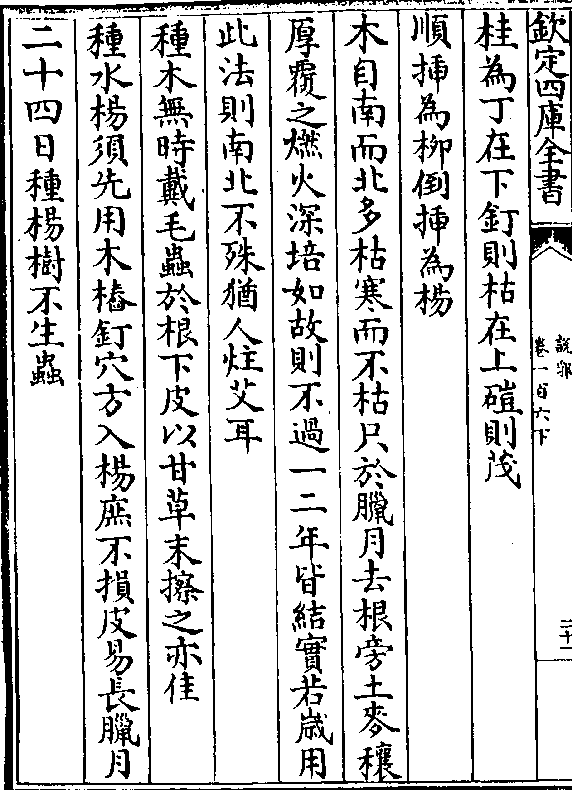 欽定四庫全書
說郛
卷一百六下
二十一
桂為丁在下釘則枯在上磑則茂
順挿為柳倒挿為楊
木自南而北多枯寒而不枯只於臘月去根旁土麥穰
厚覆之燃火深培如故則不過一二年皆結實若歲用
此法則南北不殊猶人炷艾耳
種木無時戴毛蟲於根下皮以甘草末擦之亦佳
種水楊須先用木樁釘穴方入楊庶不損皮易長臘月
二十四日種楊樹不生蟲